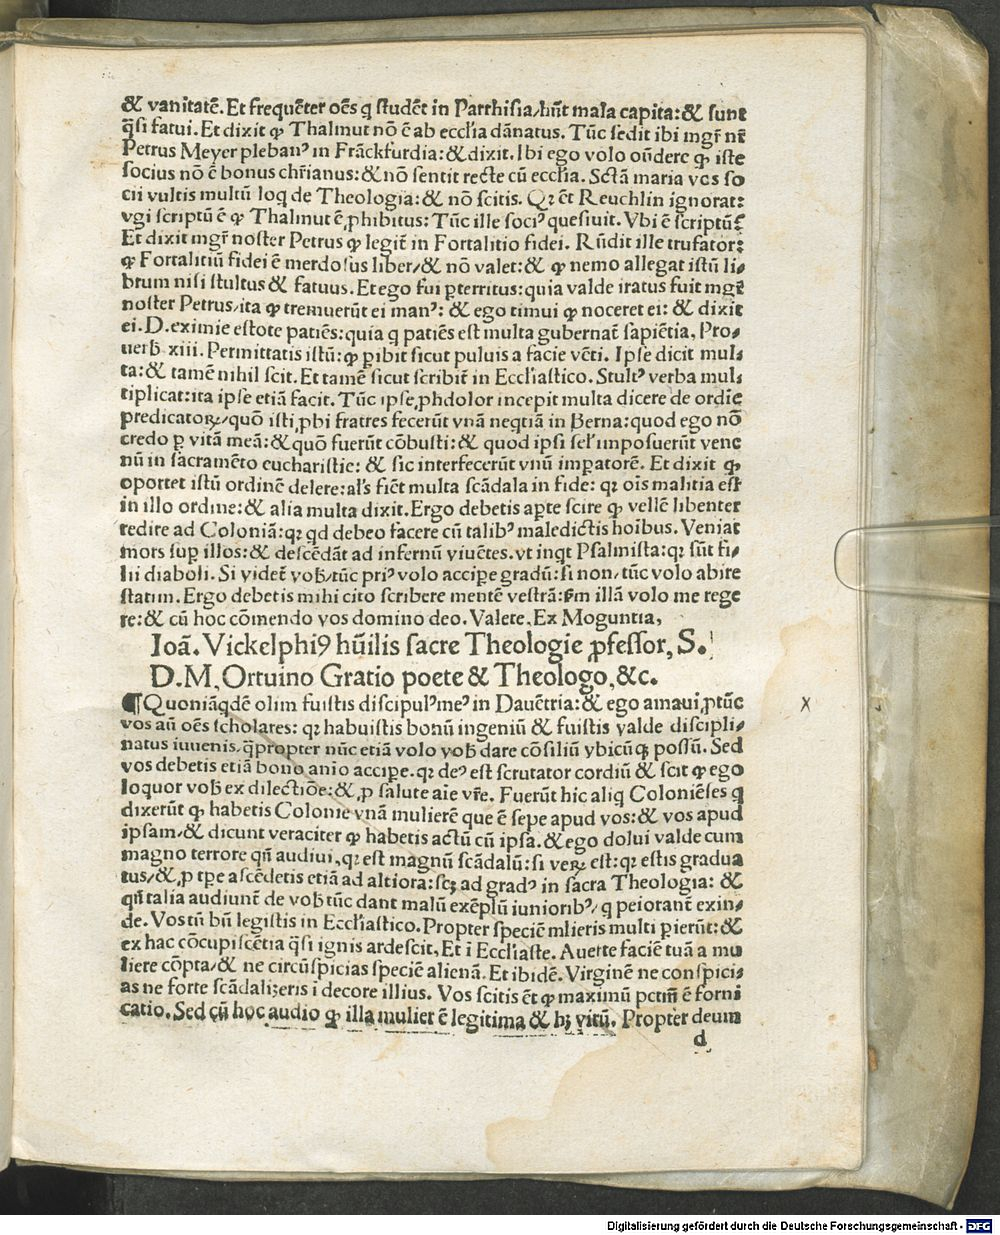 & vanitatē. Et frequēter oēs q studēt in Parrhisia/hn̄t mala capita: & sunt
q̄si fatui. Et dixit ꝙ Thalmut nō ē ab eccl'ia dānatus. Tūc sedit ibi mgr̄ nr̄
Petrus Meyer pleban⁹ in Frāckfurdia: & dixit. Ibi ego volo on̄dere ꝙ iste
socius nō ē bonus chr̄ianus: & nō sentit recte cū eccl'ia. Sctā maria vos so
cii vultis multū loq de Theologia: & nō scitis. Qꝛ ēt Reuchlin ignorat:
vgi scriptū ē ꝙ Thalmut ē ꝓhibitus: Tūc ille soci⁹ quesiuit. Vbi ē scriptū?
Et dixit mgr̄ noster Petrus ꝙ legit̄ in Fortalitio fidei. Rūdit ille trufator:
ꝙ Fortalitiū fidei ē merdosus liber/& nō valet: & ꝙ nemo allegat istū li⸗
brum nisi stultus & fatuus. Et ego fui ꝑterritus: quia valde iratus fuit mgr̄
noster Petrus/ita ꝙ tremuerūt ei man⁹: & ego timui ꝙ noceret ei: & dixit
ei. D. eximie estote patiēs: quia q patiēs est multa gubernat̄ sapiētia, Pro⸗
uerb̄ xiii. Permittatis istū: ꝙ ꝑibit sicut puluis a facie vēti. Ipse dicit mul⸗
ta: & tamē nihil scit. Et tamē sicut scribit̄ in Eccl'iastico. Stult⁹ verba mul⸗
tiplicat: ita ipse etiā facit. Tūc ipse, ꝓhdolor incepit multa dicere de ordīe
predicatoꝝ/quō isti ꝓbi fratres fecerūt vnā neqtiā in Berna: quod ego nō
credo ꝑ vitā meā: & quō fuerūt cōbusti: & quod ipsi sel' imposuerūt vene
nū in sacramēto eucharistie: & sic interfecerūt vnū imꝑatorē. Et dixit ꝙ
oportet istū ordinē delere: al's fiēt multa scādala in fide: qꝛ oīs malitia est
in illo ordine: & alia multa dixit. Ergo debetis aꝑte scire ꝙ vellē libenter
redire ad Coloniā: qꝛ qd debeo facere cū talib⁹ maledictis hoībus. Veniat
mors suꝑ illos: & descēdāt ad infernū viuētes. vt inqt Psalmista: qꝛ sūt fi⸗
lii diaboli. Si videt̄ vob̄/tūc pri⁹ volo acciꝑe gradū: si non/tūc volo abire
statim. Ergo debetis mihi cito scribere mentē vestrā: sm̄ illā volo me rege
re: & cū hoc cōmendo vos domino deo. Valete. Ex Moguntia,
Ioā. Vickelphi⁹ hūilis sacre Theologie ꝓfessor, S.
D. M. Ortuino Gratio poete & Theologo, &c.
¶Quoniāqdē olim fuistis discipul⁹ me⁹ in Dauētria: & ego amaui, ꝓtūc
vos aū oēs scholares: qꝛ habuistis bonū ingeniū & fuistis valde discipli⸗
natus iuuenis, q̄propter nūc etiā volo vob̄ dare cōsiliū vbicūq possū. Sed
vos debetis etiā bono aīo acciꝑe. qꝛ de⁹ est scrutator cordiū & scit ꝙ ego
loquor vob̄ ex dilectiōe: & ꝓ salute aīe vr̄e. Fuerūt hic aliq Coloniēses q
dixerūt ꝙ habetis Colonie vnā mulierē que ē sepe apud vos: & vos apud
ipsam/& dicunt veraciter ꝙ habetis actū cū ipsa. & ego dolui valde cum
magno terrore qn̄ audiui, qꝛ est magnū scādalū: si veꝝ est: qꝛ estis gradua
tus/& ꝓ tꝑe ascēdetis etiā ad altiora: scꝫ ad grad⁹ in sacra Theologia: &
qn̄ talia audiunt̄ de vob̄ tūc dant malū exēplū iuniorib⁹/q peiorant̄ exin⸗
de. Vos tn̄ bn̄ legistis in Eccl'iastico. Propter speciē mlieris multi ꝑierūt: &
ex hac cōcupiscētia q̄si ignis ardescit, Et ī Eccl'iaste. Auerte faciē tuā a mu
liere cōpta/& ne circūspicias speciē alienā. Et ibidē. Virginē ne conspici⸗
as ne forte scādalizeris ī decore illius. Vos scitis ēt ꝙ maximū pctm̄ ē forni
catio. Sed cū hoc audio ꝙ illa mulier ē legitima & hꝫ virū. Propter deum
d
X
Digitalisierung gefördert durch die Deutsche Forschungsgemeinschaft - DFG